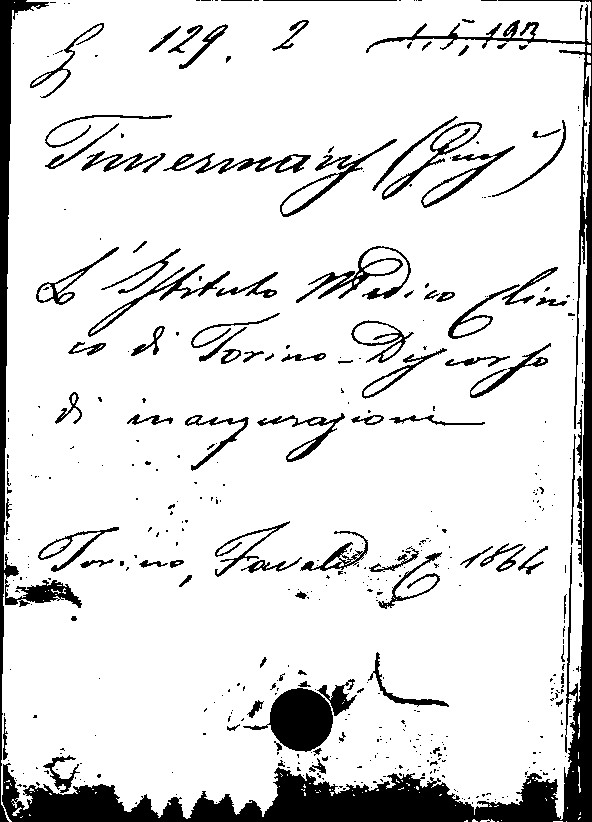 G. 129. 2 1.5.193
Timermans (Gius.)
L'Istituto Medico Clini-
co di Torino - Discorso
di inaugurazione
Torino, Favale e C 1864